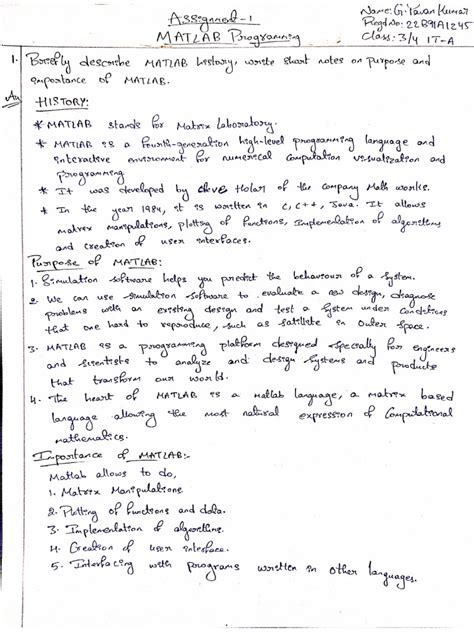 Assignment-1
MATLAB Programming
Name: G. Pavan Kumar
Regd No: 22B91A1245
Class: 3/4 IT-A
1. Briefly describe MATLAB history, write short notes on purpose and
importance of MATLAB.
HISTORY:
* MATLAB stands for Matrix Laboratory.
* MATLAB is a fourth-generation high-level programming language and
interactive environment for numerical computation visualization and
programming
* It was developed by of the company Math works.
* In the year 1984, it is written in C, C++, Java. It allows
matrix manipulations, plotting of functions, Implementation of algorithms
and creation of user interfaces.
Purpose of MATLAB:
1. Simulation software helps you predict the behaviour of a system.
2. We can use simulation software to evaluate a new design, diagnose
problems with an existing design and test a system under conditions
that are hard to reproduce, such as satillite in outer space.
3. MATLAB is a programming platform designed specially for engineers
and scientists to analyze and design systems and products
that transform our world.
4. The heart of MATLAB is a matlab language, a matrix based
language allowing the most natural expression of computational
mathematics.
Importance of MATLAB:-
Matlab allows to do,
1. Matrix Manipulations.
2. Plotting of functions and data.
3. Implementation of algorithms.
4. Creation of user interface.
5. Interfacing with programs written in other languages.